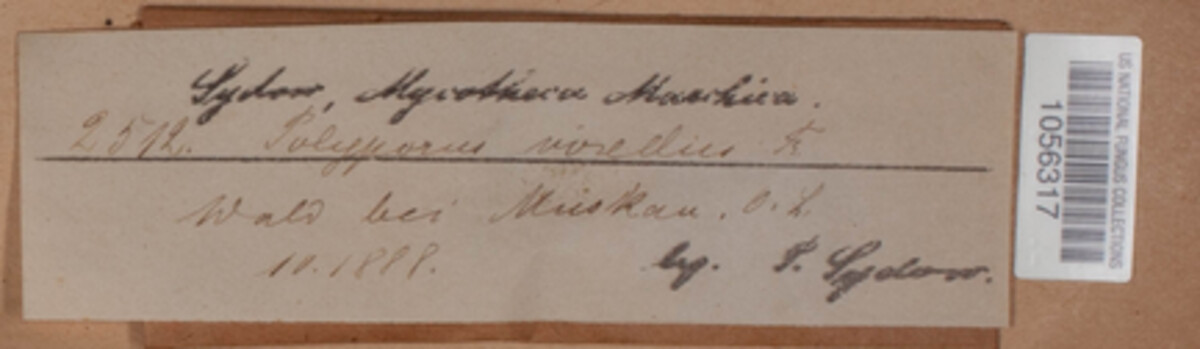 Sydow, Mycotheca Marchica.
2512. Polyporus vitellinus Fr
Wald bei Muskau. O. L.
10. 1888.
leg. P. Sydow.
US NATIONAL FUNGUS COLLECTIONS
1056317